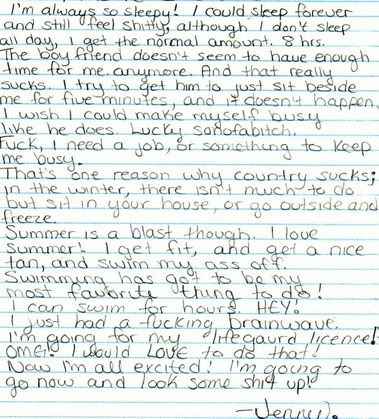 I'm always so sleepy! I could sleep forever
and still feel shitty, although I don't sleep
all day, I get the normal amount. 8 hrs.
The boyfriend doesn't seem to have enough
time for me anymore. And that really
sucks. I try to get him to just sit beside
me for five minutes, and it doesn't happen.
I wish I could make myself busy
like he does. Lucky sonofabitch.
Fuck, I need a job, or something to keep
me busy.
That's one reason why country sucks;
in the winter, there isn't much to do
but sit in your house, or go outside and
freeze.
Summer is a blast though. I love
summer! I get fit, and get a nice
tan, and swim my ass off.
Swimming has got to be my
most favorite thing to do!
I can swim for hours. HEY!
I just had a fucking brainwave.
I'm going for my lifegaurd licence!
OMG! I would LOVE to do that!
Now I'm all excited! I'm going to
go now and look some shit up!